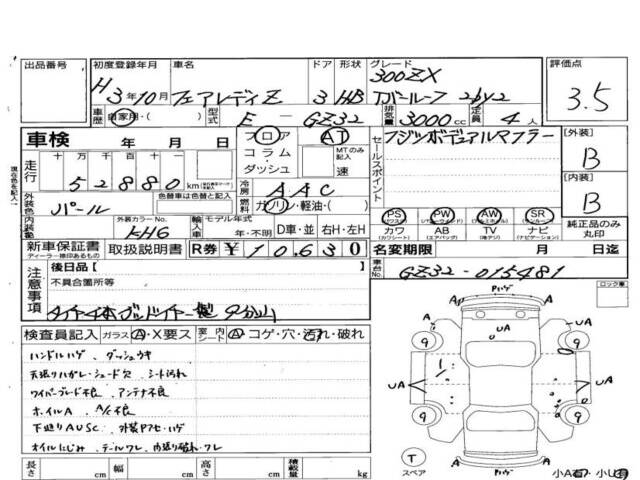 出品番号 初度登録年月 車名 ドア 形状 グレード 評価点
H3年10月 フェアレディZ 3 HB 300ZX Tバールーフ 2by2 3.5
車歴 自家用・( ) 型式 E-GZ32 排気量 3000cc 定員 4人
車検 年 月 日 フロア コラム ダッシュ AT MTのみ記入 速
セールスポイント フジツボデュアルマフラー
[外装] B
[内装] B
走行 十万 万 千 百 十 52880 km
冷房 AAC
外装色 パール 色替車は色替前と色替後を記入
燃料 ガソリン・軽油・( )
内装色 外装カラーNo. KH6 輸入車 モデル年式 年・不明 D車・並 右H・左H
PS PW AW SR 純正品のみ丸印
カワ AB TV ナビ
新車保証書 取扱説明書 R券 ¥10,630
ディーラー様印あるもの
名変期限 月 日迄
車台No. GZ32-015481
注意事項 後日品[ ]
不具合箇所等
タイヤ4本グッドイヤー製 9分山
検査員記入 ガラス A・X要ス 室内シート A・コゲ・穴・汚れ・破れ
ハンドルハゲ、ダッシュウキ
天張りハガレ・シェード欠 シート汚れ
ワイパーブレード不良、アンテナ不良
ホイルA A/C不良
下廻りAUSC、外装PアセハゲP
オイルにじみ、テールワレ、内張り破れ・ワレ
長さ cm 幅 cm 高さ cm 積載量 kg
現在色を記入
ロック車
Pハゲ
A A
UA
9 9
UA UA
9 9
A A
Pハゲ
T
スペア
小A有・小U有